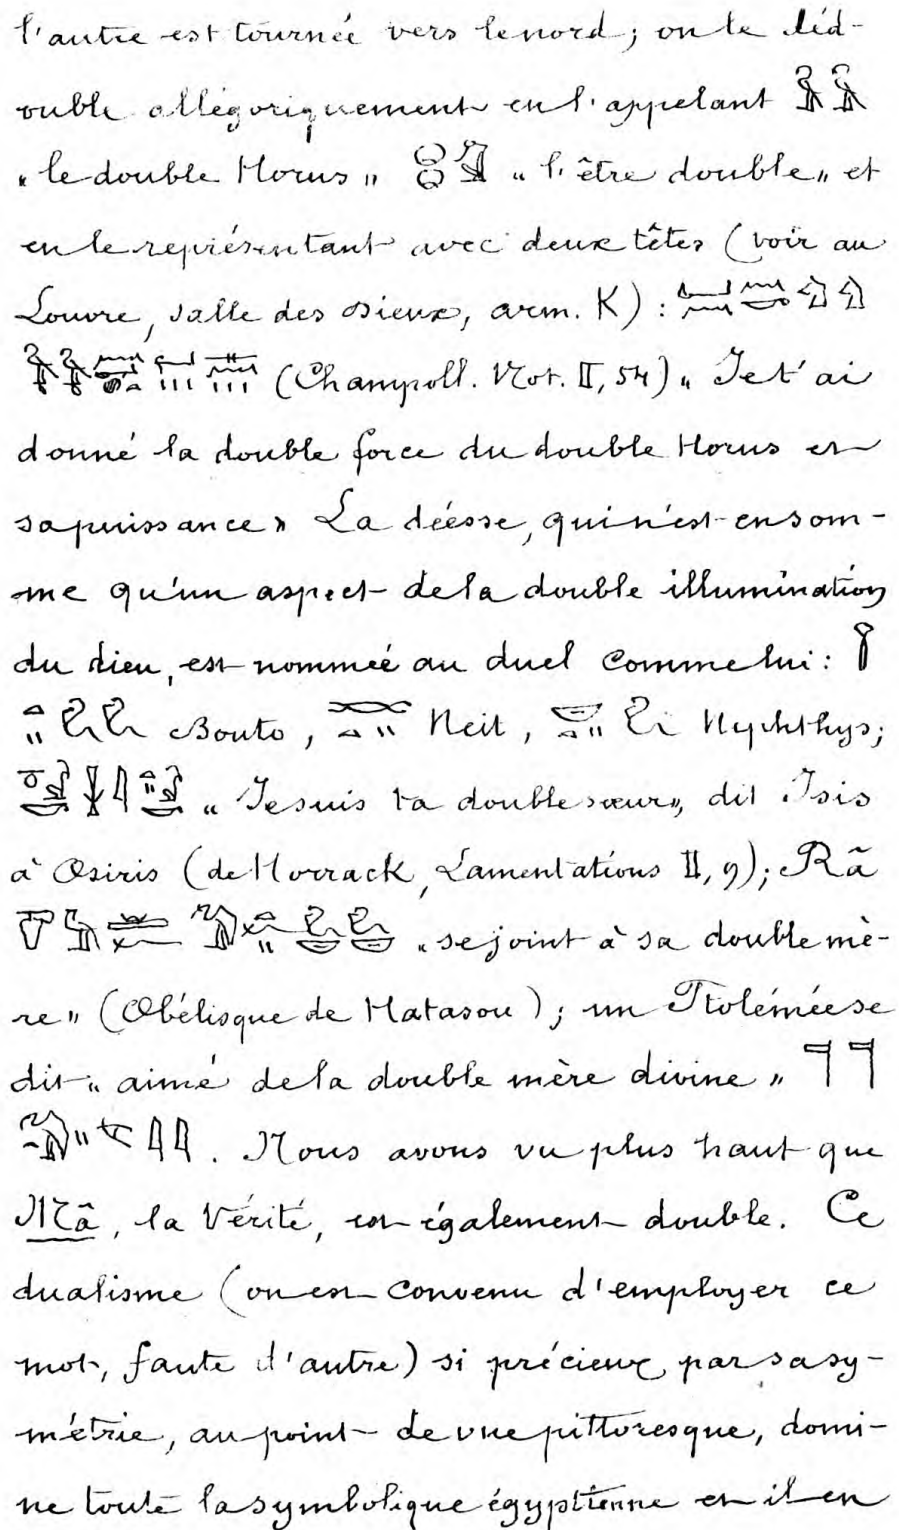 l'autre est tourné vers le nord; on le déd-
ouble allégoriquement en l'appelant
« le double Horus » « l'être double » et
en le représentant avec deux têtes (voir au
Louvre, salle des Dieux, arm. K) :
(Champoll. Not. II, 54) « Je t'ai
donné la double force du double Horus et
sa puissance » La déesse, qui n'est en som-
me qu'un aspect de la double illumination
du dieu, est nommée au duel comme lui :
Bouto, Neit, Nephthys;
« Je suis ta double sœur », dit Isis
à Osiris (de Horrack, Lamentations II, 9); Râ
« se joint à sa double mè-
re » (Obélisque de Hatasou); un Ptolémée se
dit « aimé de la double mère divine »
. Nous avons vu plus haut que
Mâ, la Vérité, est également double. Ce
dualisme (on est convenu d'employer ce
mot, faute d'autre) si précieux par sa sy-
métrie, au point de vue pittoresque, domi-
ne toute la symbolique égyptienne et il en